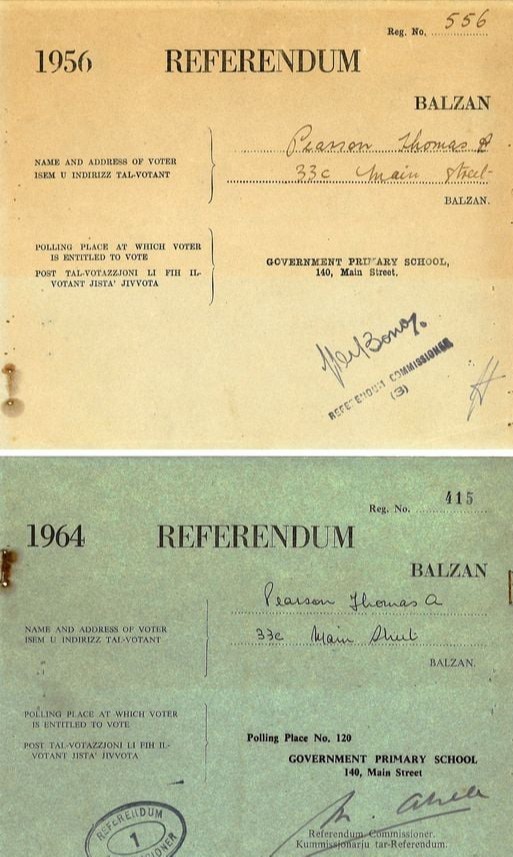 Reg. No. 556
1956 REFERENDUM
BALZAN
Pearson Thomas A
NAME AND ADDRESS OF VOTER
ISEM U INDIRIZZ TAL-VOTANT
33c Main Street
BALZAN.
POLLING PLACE AT WHICH VOTER
IS ENTITLED TO VOTE
POST TAL-VOTAZZJONI LI FIH IL-
VOTANT JISTA' JIVVOTA
GOVERNMENT PRIMARY SCHOOL,
140, Main Street.
REFERENDUM COMMISSIONER
(3)
Reg. No. 415
1964 REFERENDUM
BALZAN
Pearson Thomas A
NAME AND ADDRESS OF VOTER
ISEM U INDIRIZZ TAL-VOTANT
33c Main Street
BALZAN.
POLLING PLACE AT WHICH VOTER
IS ENTITLED TO VOTE
POST TAL-VOTAZZJONI LI FIH IL-
VOTANT JISTA' JIVVOTA
Polling Place No. 120
GOVERNMENT PRIMARY SCHOOL
140, Main Street
REFERENDUM
1
Referendum Commissioner.
Kummissjonarju tar-Referendum.